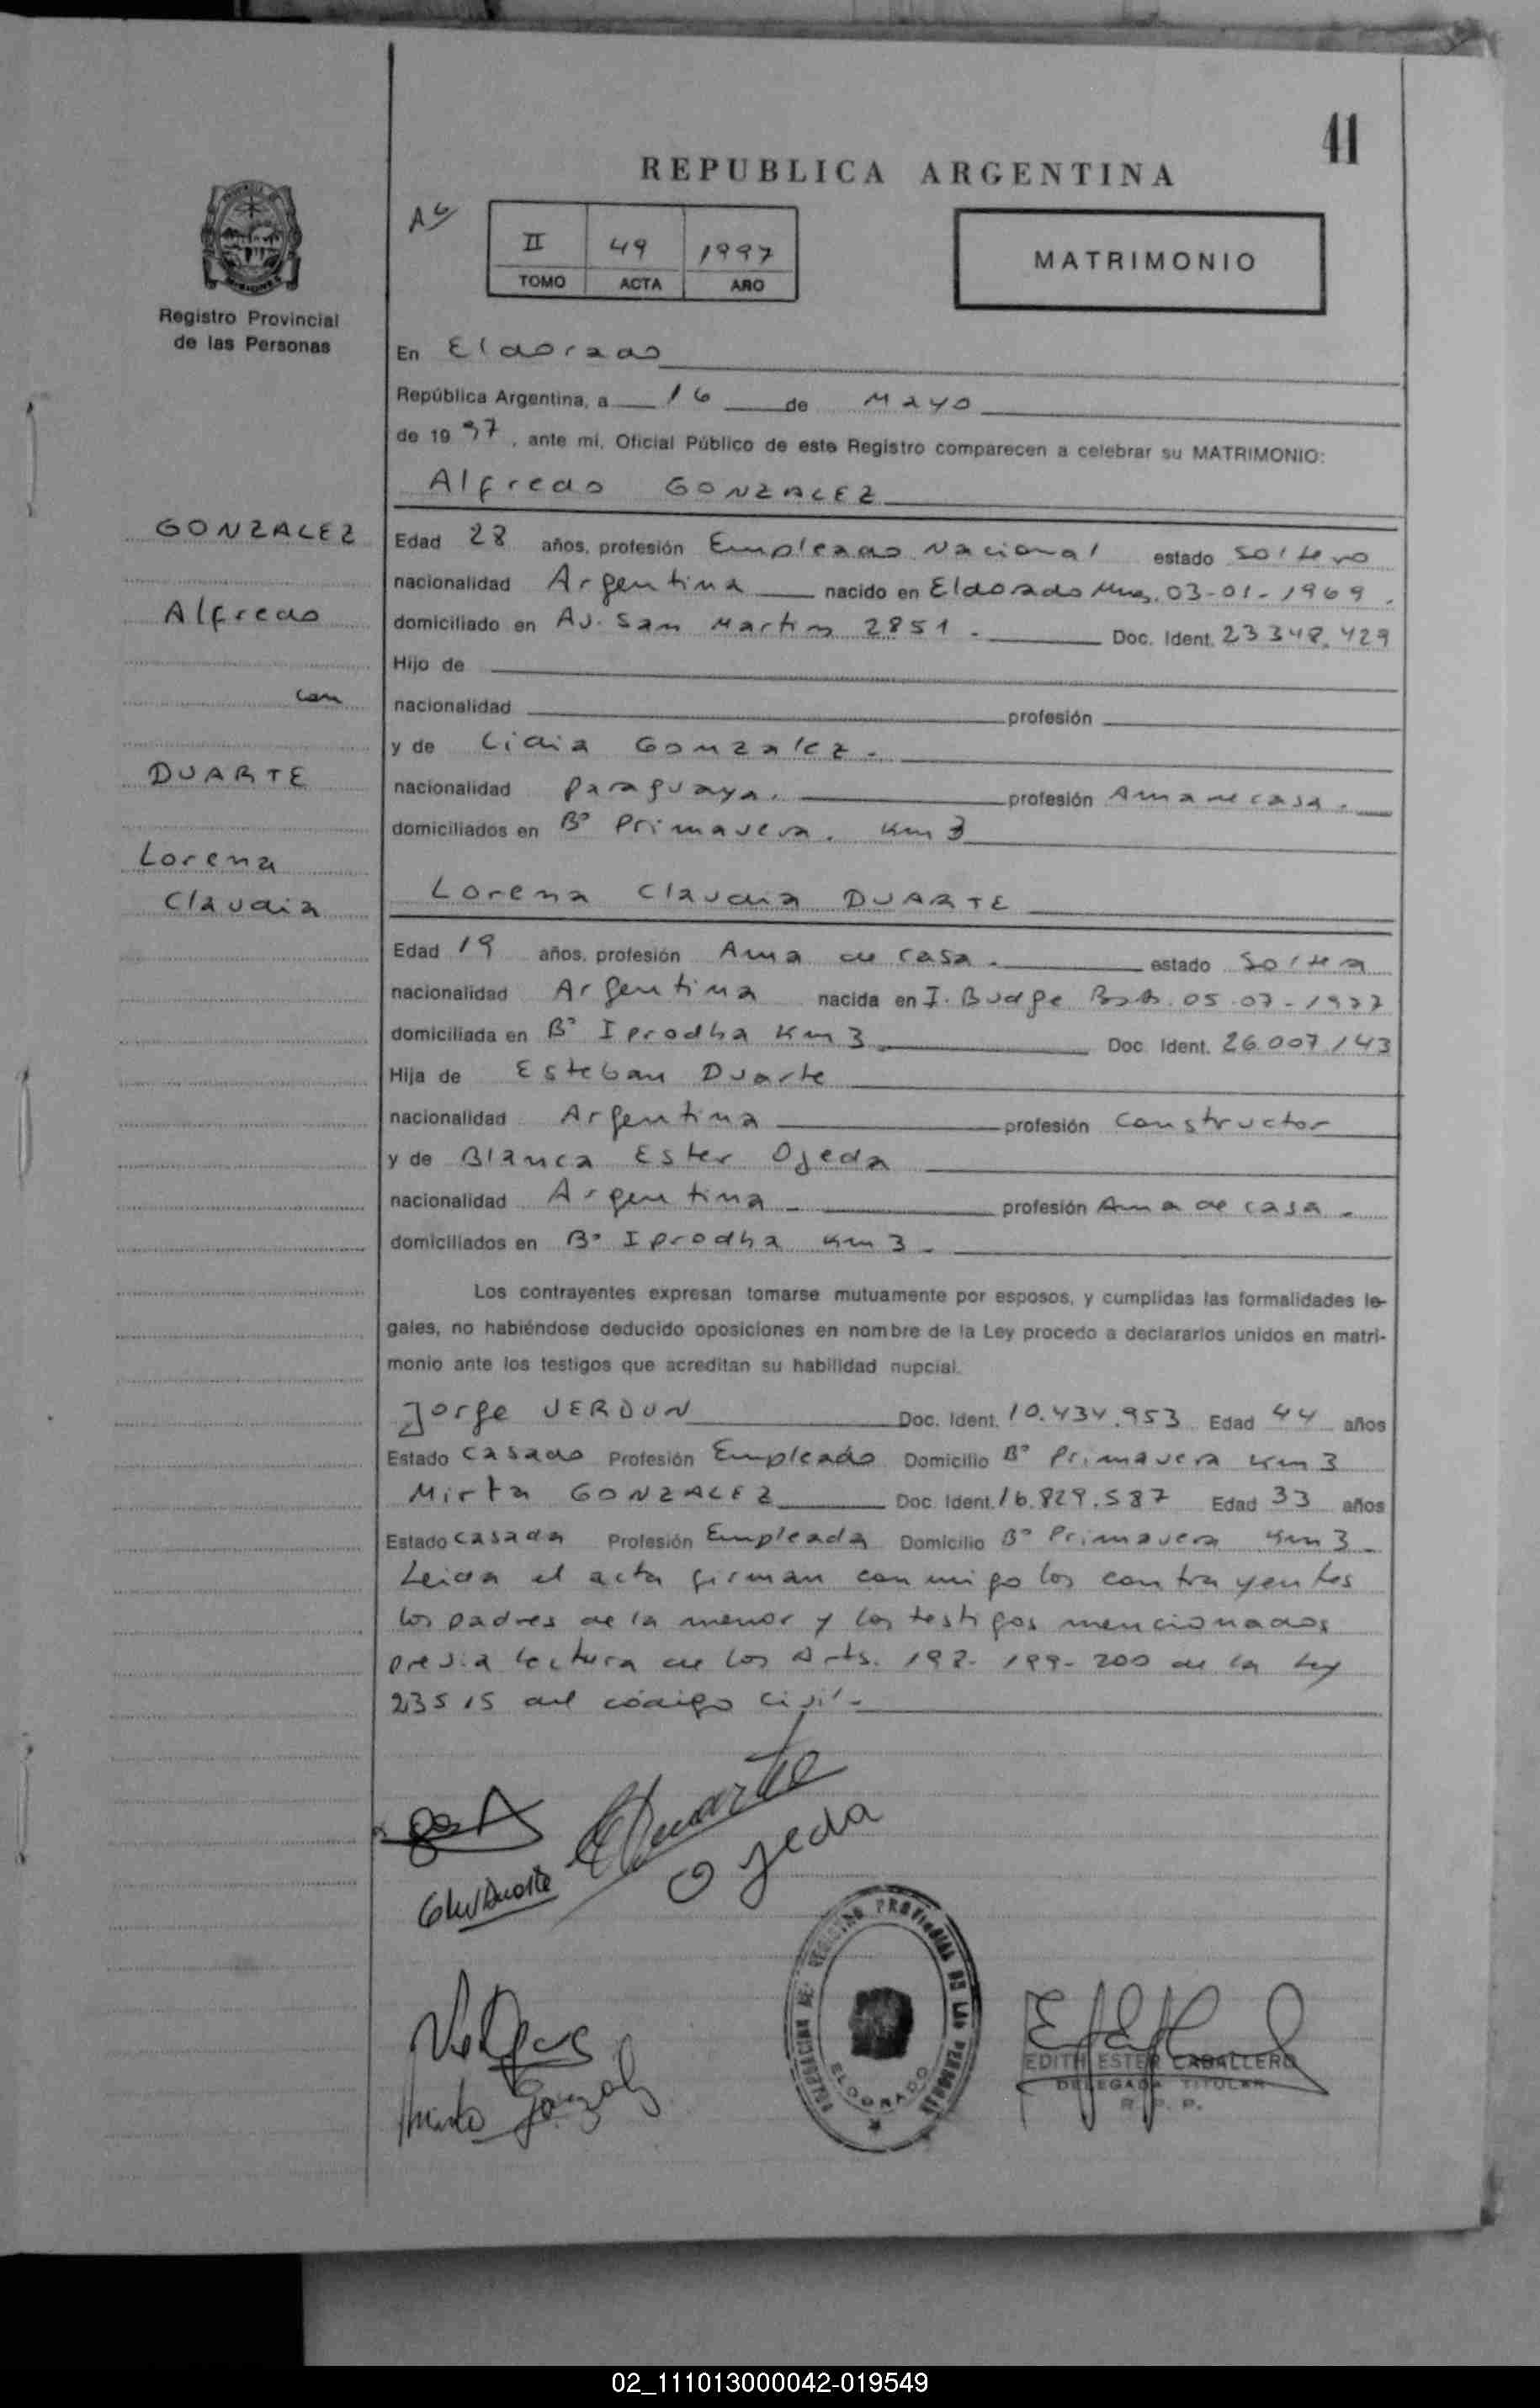 41
REPUBLICA ARGENTINA
II 49 1997
TOMO ACTA AÑO
MATRIMONIO
Registro Provincial
de las Personas
En Eldorado
República Argentina, a 16 de Mayo
de 19 97, ante mí, Oficial Público de este Registro comparecen a celebrar su MATRIMONIO:
Alfredo GONZALEZ
GONZALEZ
Alfredo
con
DUARTE
Lorena
Claudia
Edad 28 años, profesión Empleado Nacional estado soltero
nacionalidad Argentina nacido en Eldorado Mnes. 03-01-1969.
domiciliado en Av. San Martin 2851. Doc. Ident. 23.348.429
Hijo de
nacionalidad profesión
y de Lidia Gonzalez.
nacionalidad Paraguaya. profesión Ama de casa.
domiciliados en Bº Primavera. Km 3
Lorena Claudia DUARTE
Edad 19 años, profesión Ama de casa. estado Soltera
nacionalidad Argentina nacida en I. Budge Bs.As. 05-07-1977
domiciliada en Bº Iprodha Km 3 Doc. Ident. 26.007.143
Hija de Esteban Duarte
nacionalidad Argentina profesión Constructor
y de Blanca Ester Ojeda
nacionalidad Argentina profesión Ama de casa.
domiciliados en Bº Iprodha Km 3.
Los contrayentes expresan tomarse mutuamente por esposos, y cumplidas las formalidades le-
gales, no habiéndose deducido oposiciones en nombre de la Ley procedo a declararlos unidos en matri-
monio ante los testigos que acreditan su habilidad nupcial.
Jorge VERDUN Doc. Ident. 10.434.953 Edad 44 años
Estado casado Profesión Empleado Domicilio Bº Primavera Km 3
Mirta GONZALEZ Doc. Ident. 16.829.587 Edad 33 años
Estado casada Profesión Empleada Domicilio Bº Primavera Km 3.
Leida el acta firman conmigo los contrayentes
los padres de la menor y los testigos mencionados
previa lectura de los Arts. 198-199-200 de la Ley
23515 del código Civil.
Duarte
Ojeda
Duarte
DELEGACION DE REGISTRO PROVINCIAL DE LAS PERSONAS
ELDORADO
EDITH ESTER CABALLERO
DELEGADA TITULAR
R. P. P.
02_111013000042-019549